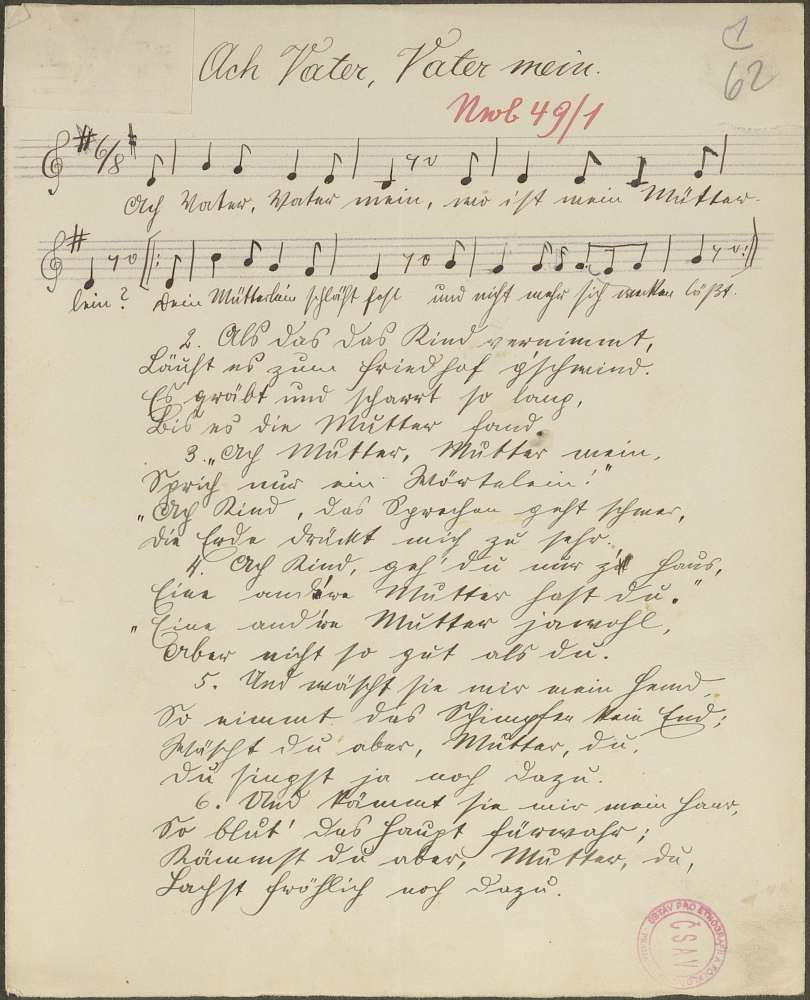 1
62
Ach Vater, Vater mein.
Nwb 49/1
6/8
Ach Vater, Vater mein, wo ist mein Mütter-
lein? Dein Mütterlein schläft fest und nicht mehr sich wecken läßt.
2. Als das das Kind vernimmt,
Läuft es zum Friedhof g'schwind.
Es gräbt und scharrt so lang,
Bis es die Mutter fand.
3. „Ach Mutter, Mutter mein,
Sprich nur ein Wörtelein!"
„Ach Kind, das Sprechen geht schwer,
Die Erde drückt mich zu sehr.
4. Ach Kind, geh' du nur z' Haus,
Eine and're Mutter hast du."
„Eine and're Mutter jawohl,
Aber nicht so gut als du.
5. Und wäscht sie mir mein Hemd,
So nimmt das Schimpfen kein End;
Wäscht du aber, Mutter, du,
Du singst ja noch dazu.
6. Und kämmt sie mir mein Haar,
So blut' das Haupt fürwahr;
Kämmst du aber, Mutter, du,
Lachst fröhlich noch dazu.
ÚSTAV PRO ETNOGRAFII A FOLKLOR
ČSAV